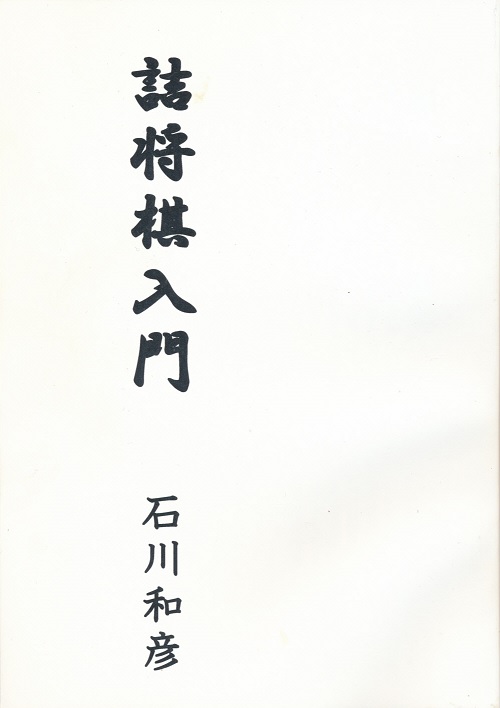 詰将棋入門
石川和彦